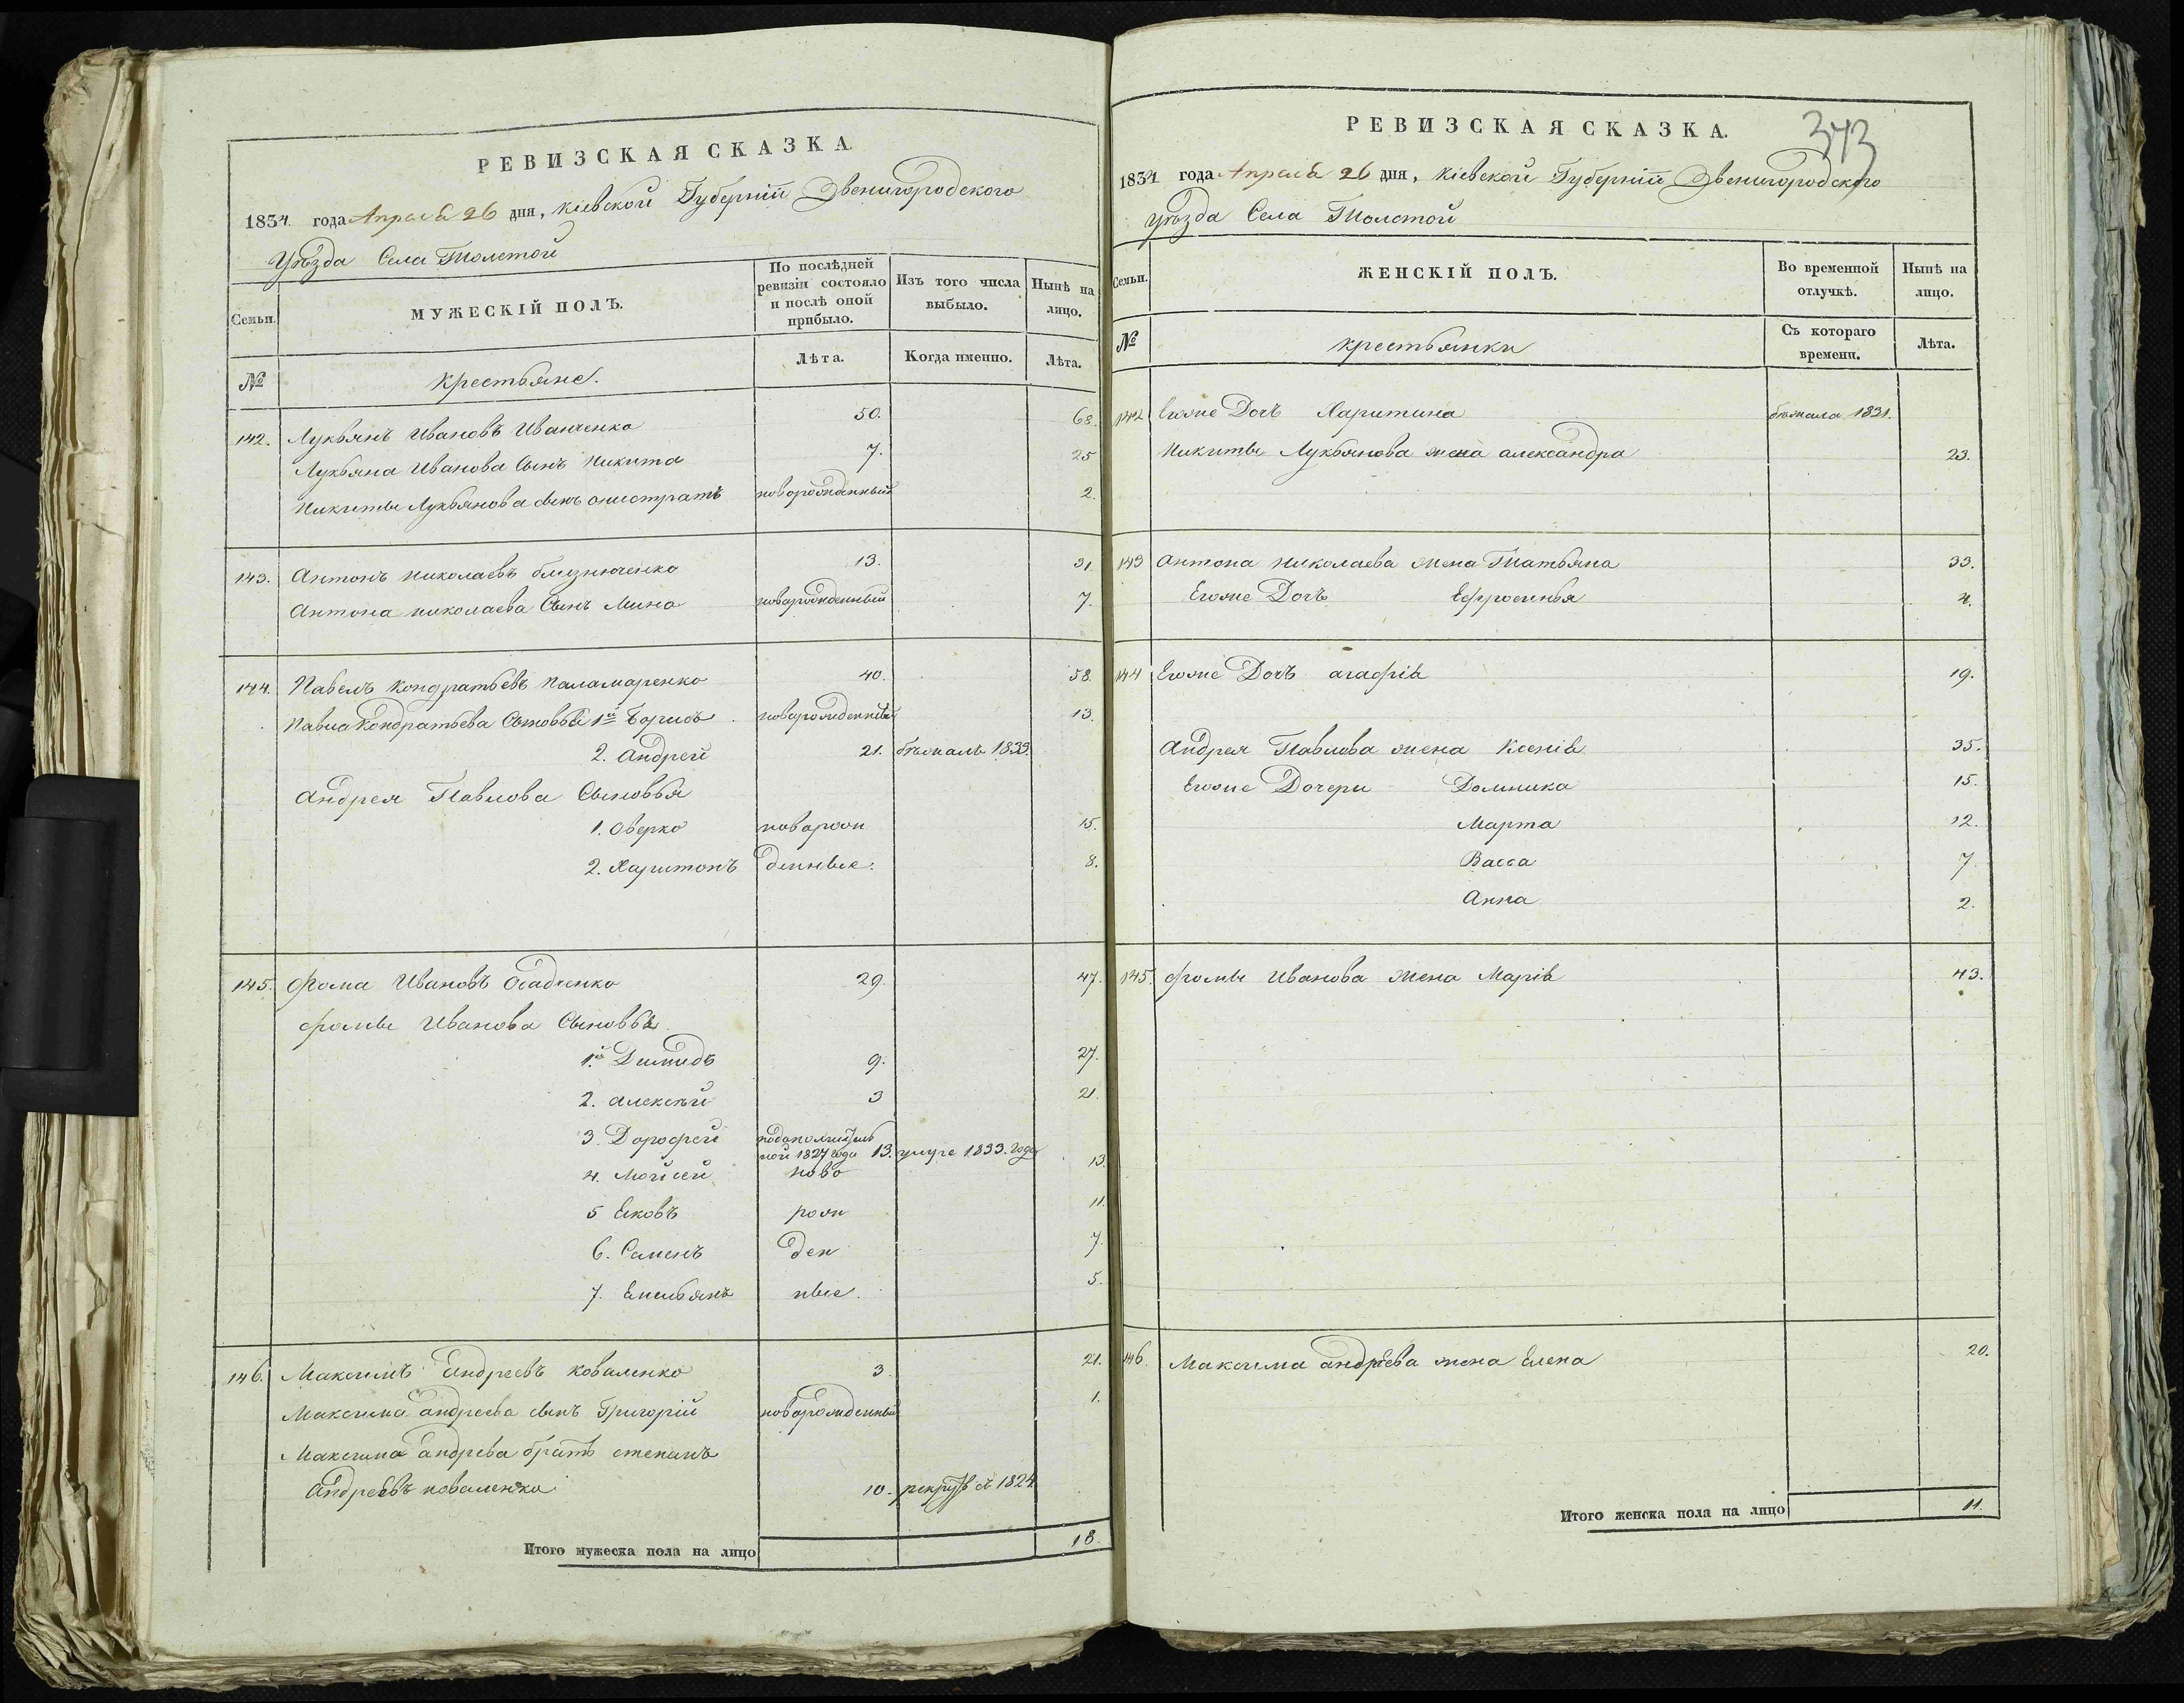 РЕВИЗСКАЯ СКАЗКА.
1834 года Апреля 26 дня, Кіевской Губерніи Звенигородского
Уѣзда Села Толстой
Семьи.
МУЖЕСКІЙ ПОЛЪ.
По послѣдней ревизіи состояло и послѣ оной прибыло.
Изъ того числа выбыло.
Нынѣ на лицо.
№
Крестьяне.
Лѣта.
Когда именно.
Лѣта.
142. Лукьянъ Ивановъ Иванченко 50. 68.
Лукьяна Иванова Сынъ Никита 7. 25
Никиты Лукьянова сынъ онистратъ новорожденный 2.
143. Антонъ Николаевъ близнюченко 13. 31
Антона николаева Сынъ Мина новорожденный 7.
144. Павелъ Кондратьевъ Паламаренко 40. 58.
Павла Кондратьева Сыновья 1й Борисъ новорожденный 13.
2. Андрей 21. бѣжалъ 1833.
Андрея Павлова Сыновья
1. Оверко новорож 15.
2. Харитонъ денные. 8.
145. Фома Ивановъ Осадченко 29. 47.
Фомы Иванова Сыновья
1й Димидъ 9. 27.
2. Алексѣй 3 21.
3. Дорофей подополнитель
ной 1827 года 13. умре 1833. года
4. Мойсей ново 13.
5 Яковъ рож 11.
6. Семенъ ден 7.
7. Емельянъ ные. 5.
146. Максимъ Андреевъ Коваленко 3. 21.
Максима андреева сынъ Григорій новорожденный 1.
Максима андрева братъ степанъ
Андреевъ коваленко 10. рекрут въ 1824
Итого мужеска пола на лицо 18.
РЕВИЗСКАЯ СКАЗКА.
343
1834 года Апреля 26 дня, Кіевской Губерніи Звенигородского
Уѣзда Села Толстой
Семьи.
ЖЕНСКІЙ ПОЛЪ.
Во временной отлучкѣ.
Нынѣ на лицо.
№
Крестьянки
Съ котораго времени.
Лѣта.
142 Егоже Дочъ Харитина бѣжала 1831.
Никиты Лукьянова жена александра 23.
143 Антона николаева жена Татьяна 33.
Егоже Дочъ Ефросинья 4.
144 Егоже Дочъ агафія 19.
Андрея Павлова жена Ксенія 35.
Егоже Дочери Домника 15.
Марта 12.
Васса 7.
Анна 2.
145. Фомы Иванова жена Марія 43.
146. Максима андреева жена Елена 20.
Итого женска пола на лицо 11.